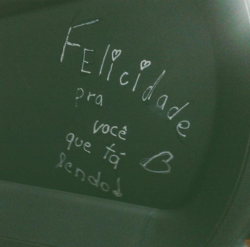 Felicidade
pra
você
que tá
lendo!